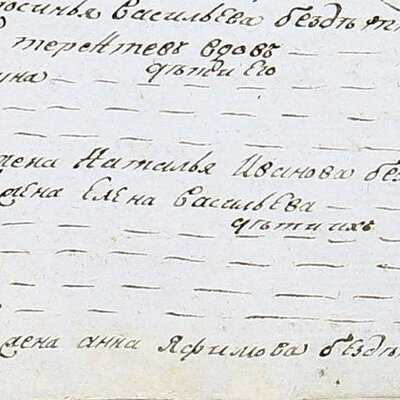 Васильева бездѣт
терентевъ вдовъ
дѣти Его
жена Наталья Иванова без
жена Елена Васильева
дѣти ихъ
жена анна Яфимова бездѣ